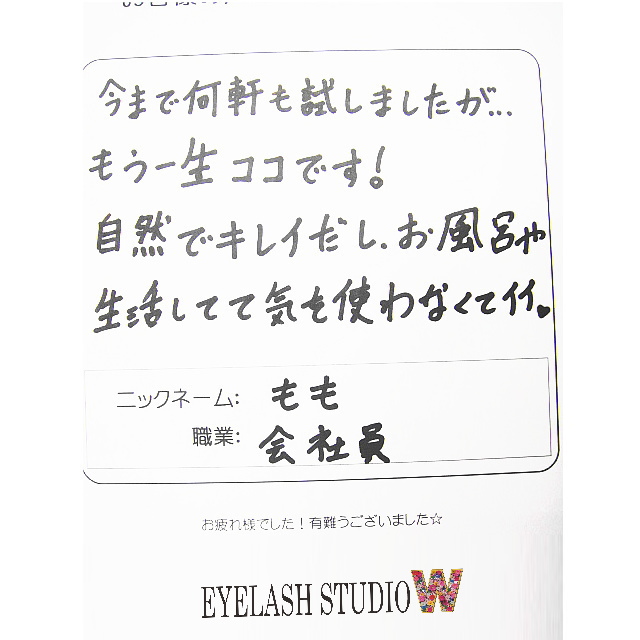 今まで何軒も試しましたが...
もう一生ココです!
自然でキレイだし、お風呂や
生活してて気を使わなくてイイ♥
ニックネーム: もも
職業: 会社員
お疲れ様でした!有難うございました☆
EYELASH STUDIO W